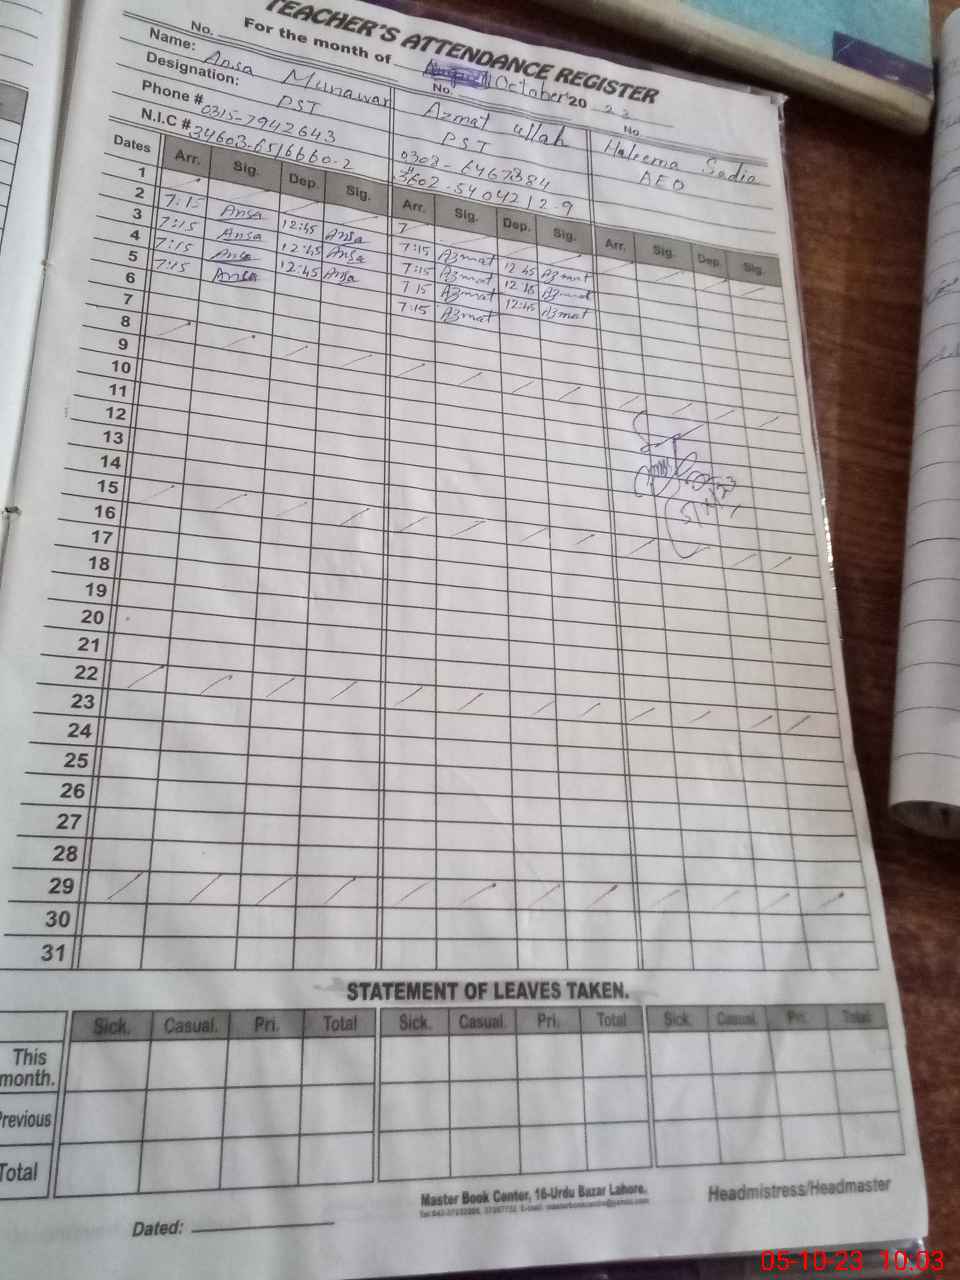 TEACHER'S ATTENDANCE REGISTER
For the month of October 20 23
No. No. No.
Name: Ansa Munawar Azmat ullah Haleema Sadia
Designation: PST PST AEO
Phone # 0315-7942643 0303-6467384
N.I.C # 34603-6516660-2 3602-5404212-9
Dates Arr. Sig. Dep. Sig. Arr. Sig. Dep. Sig. Arr. Sig. Dep. Sig.
1
2 7:15 Ansa 12:45 Ansa 7:15 Azmat 12:45 Azmat
3 7:15 Ansa 12:45 Ansa 7:15 Azmat Azmat
4 7:15 Ansa 12:45 Ansa 7 15 Azmat 12:45 Azmat
5 7:15 Ansa 7:15 Azmat
6
7
8
9
10
11
12
13
14
15
16
17
18
19
20
21
22
23
24
25
26
27
28
29
30
31
STATEMENT OF LEAVES TAKEN.
Sick. Casual. Pri. Total Sick. Casual. Pri. Total Sick. Casual. Pri. Total
This month.
Previous
Total
Master Book Center, 16-Urdu Bazar Lahore.
Headmistress/Headmaster
Dated:
05-10-23 10:03